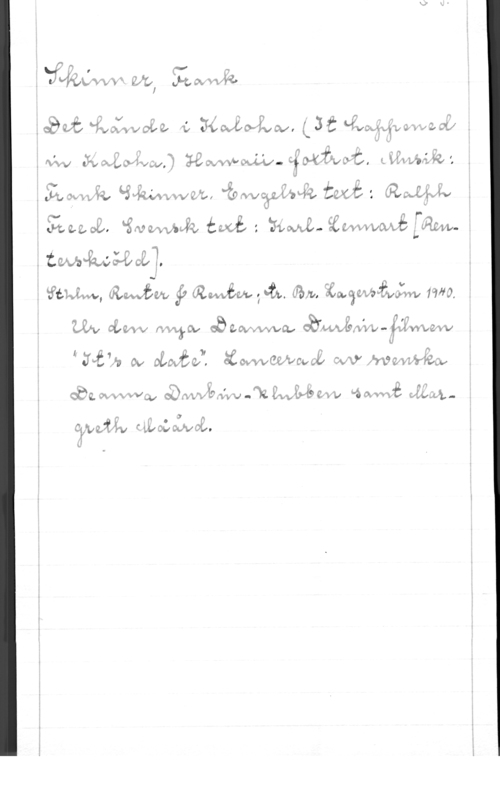 Skinner, Frank
Det hände i Kaloha. (It happened
in Kaloha.) Hawaii-foxtrot. Musik:
Frank Skinner. Engelsk text: Ralph
Freed. Svensk text: Karl-Lennart [Reu-
terskiöld].
Sthlm, Reuter & Reuter; tr. Br. Lagerström 1940.
Ur den nya Deanna Durbin-filmen
"It's a date". Lancerad av svenska
Deanna Durbin-klubben samt Mar-
greth Måård.